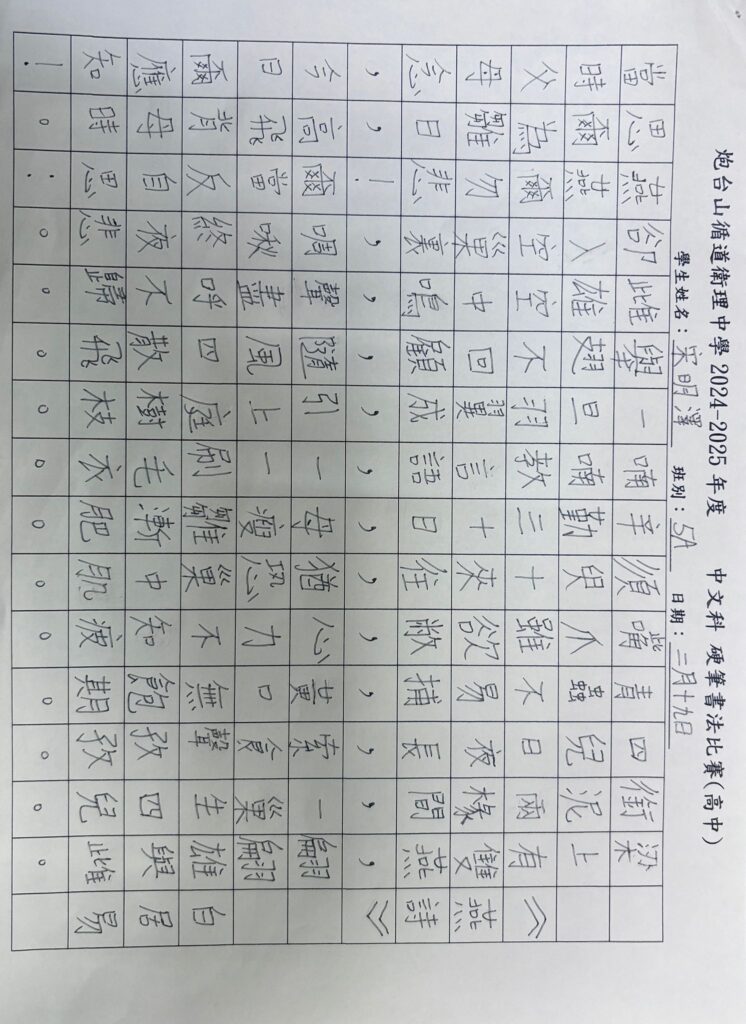 炮台山循道衛理中學 2024-2025 年度 中文科 硬筆書法比賽(高中)
學生姓名：宋明澤 班別：5A 日期：二月十九日
《燕詩》白居易
梁上有雙燕，翩翩雄與雌。
銜泥兩椽間，一巢生四兒。
四兒日夜長，索食聲孜孜。
青蟲不易捕，黃口無飽期。
嘴爪雖欲敝，心力不知疲。
須臾十來往，猶恐巢中肌。
辛勤三十日，母瘦雛漸肥。
喃喃教言語，一一刷毛衣。
一旦羽翼成，引上庭樹枝。
舉翅不回顧，隨風四散飛。
雌雄空中鳴，聲盡呼不歸。
卻入空巢裏，啁啾終夜悲。
燕燕爾勿悲！爾當反自思：
思爾為雛日，高飛背母時。
當時父母念，今日爾應知！